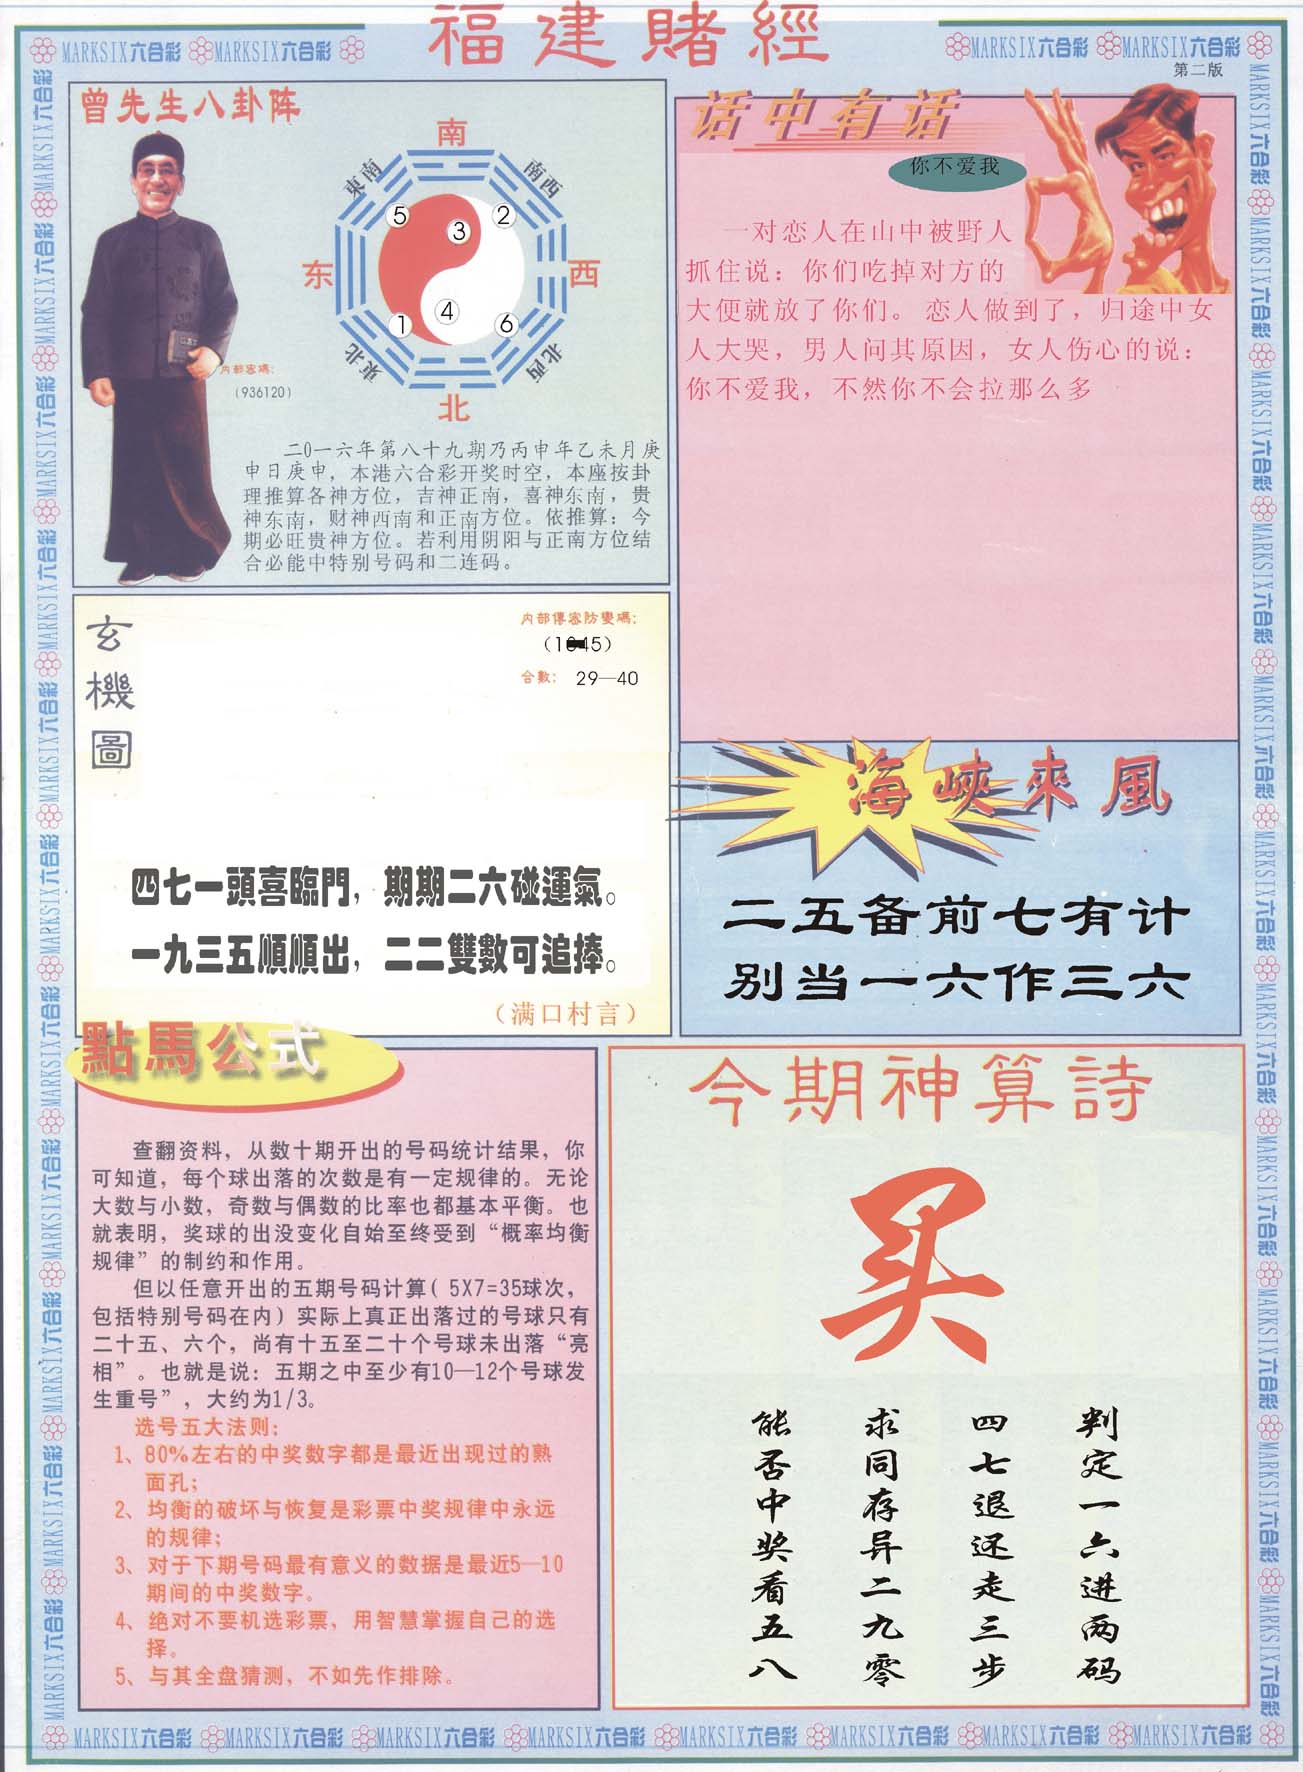 福建賭經
MARKSIX六合彩 MARKSIX六合彩
MARKSIX六合彩 MARKSIX六合彩
第二版
曾先生八卦阵
南
東南
南西
5
3
2
东
西
4
1
6
東北
北西
北
内部密碼:
(936120)
二0一六年第八十九期乃丙申年乙未月庚
申日庚申，本港六合彩开奖时空，本座按卦
理推算各神方位，吉神正南，喜神东南，贵
神东南，财神西南和正南方位。依推算：今
期必旺贵神方位。若利用阴阳与正南方位结
合必能中特别号码和二连码。
话中有话
你不爱我
一对恋人在山中被野人
抓住说：你们吃掉对方的
大便就放了你们。恋人做到了，归途中女
人大哭，男人问其原因，女人伤心的说：
你不爱我，不然你不会拉那么多
玄機圖
内部傳密防變碼:
合數: 29—40
四七一頭喜臨門，期期二六碰運氣。
一九三五順順出，二二雙數可追捧。
（满口村言）
海峽來風
二五备前七有计
别当一六作三六
點馬公式
查翻资料，从数十期开出的号码统计结果，你
可知道，每个球出落的次数是有一定规律的。无论
大数与小数，奇数与偶数的比率也都基本平衡。也
就表明，奖球的出没变化自始至终受到“概率均衡
规律”的制约和作用。
但以任意开出的五期号码计算( 5X7=35球次，
包括特别号码在内）实际上真正出落过的号球只有
二十五、六个，尚有十五至二十个号球未出落“亮
相”。也就是说：五期之中至少有10—12个号球发
生重号”，大约为1/3。
选号五大法则：
1、80%左右的中奖数字都是最近出现过的熟
面孔；
2、均衡的破坏与恢复是彩票中奖规律中永远
的规律；
3、对于下期号码最有意义的数据是最近5—10
期间的中奖数字。
4、绝对不要机选彩票，用智慧掌握自己的选
择。
5、与其全盘猜测，不如先作排除。
今期神算詩
买
判定一六进两码
四七退还走三步
求同存异二九零
能否中奖看五八
MARKSIX六合彩 MARKSIX六合彩 MARKSIX六合彩 MARKSIX六合彩 MARKSIX六合彩 MARKSIX六合彩 MARKSIX六合彩 MARKSIX六合彩